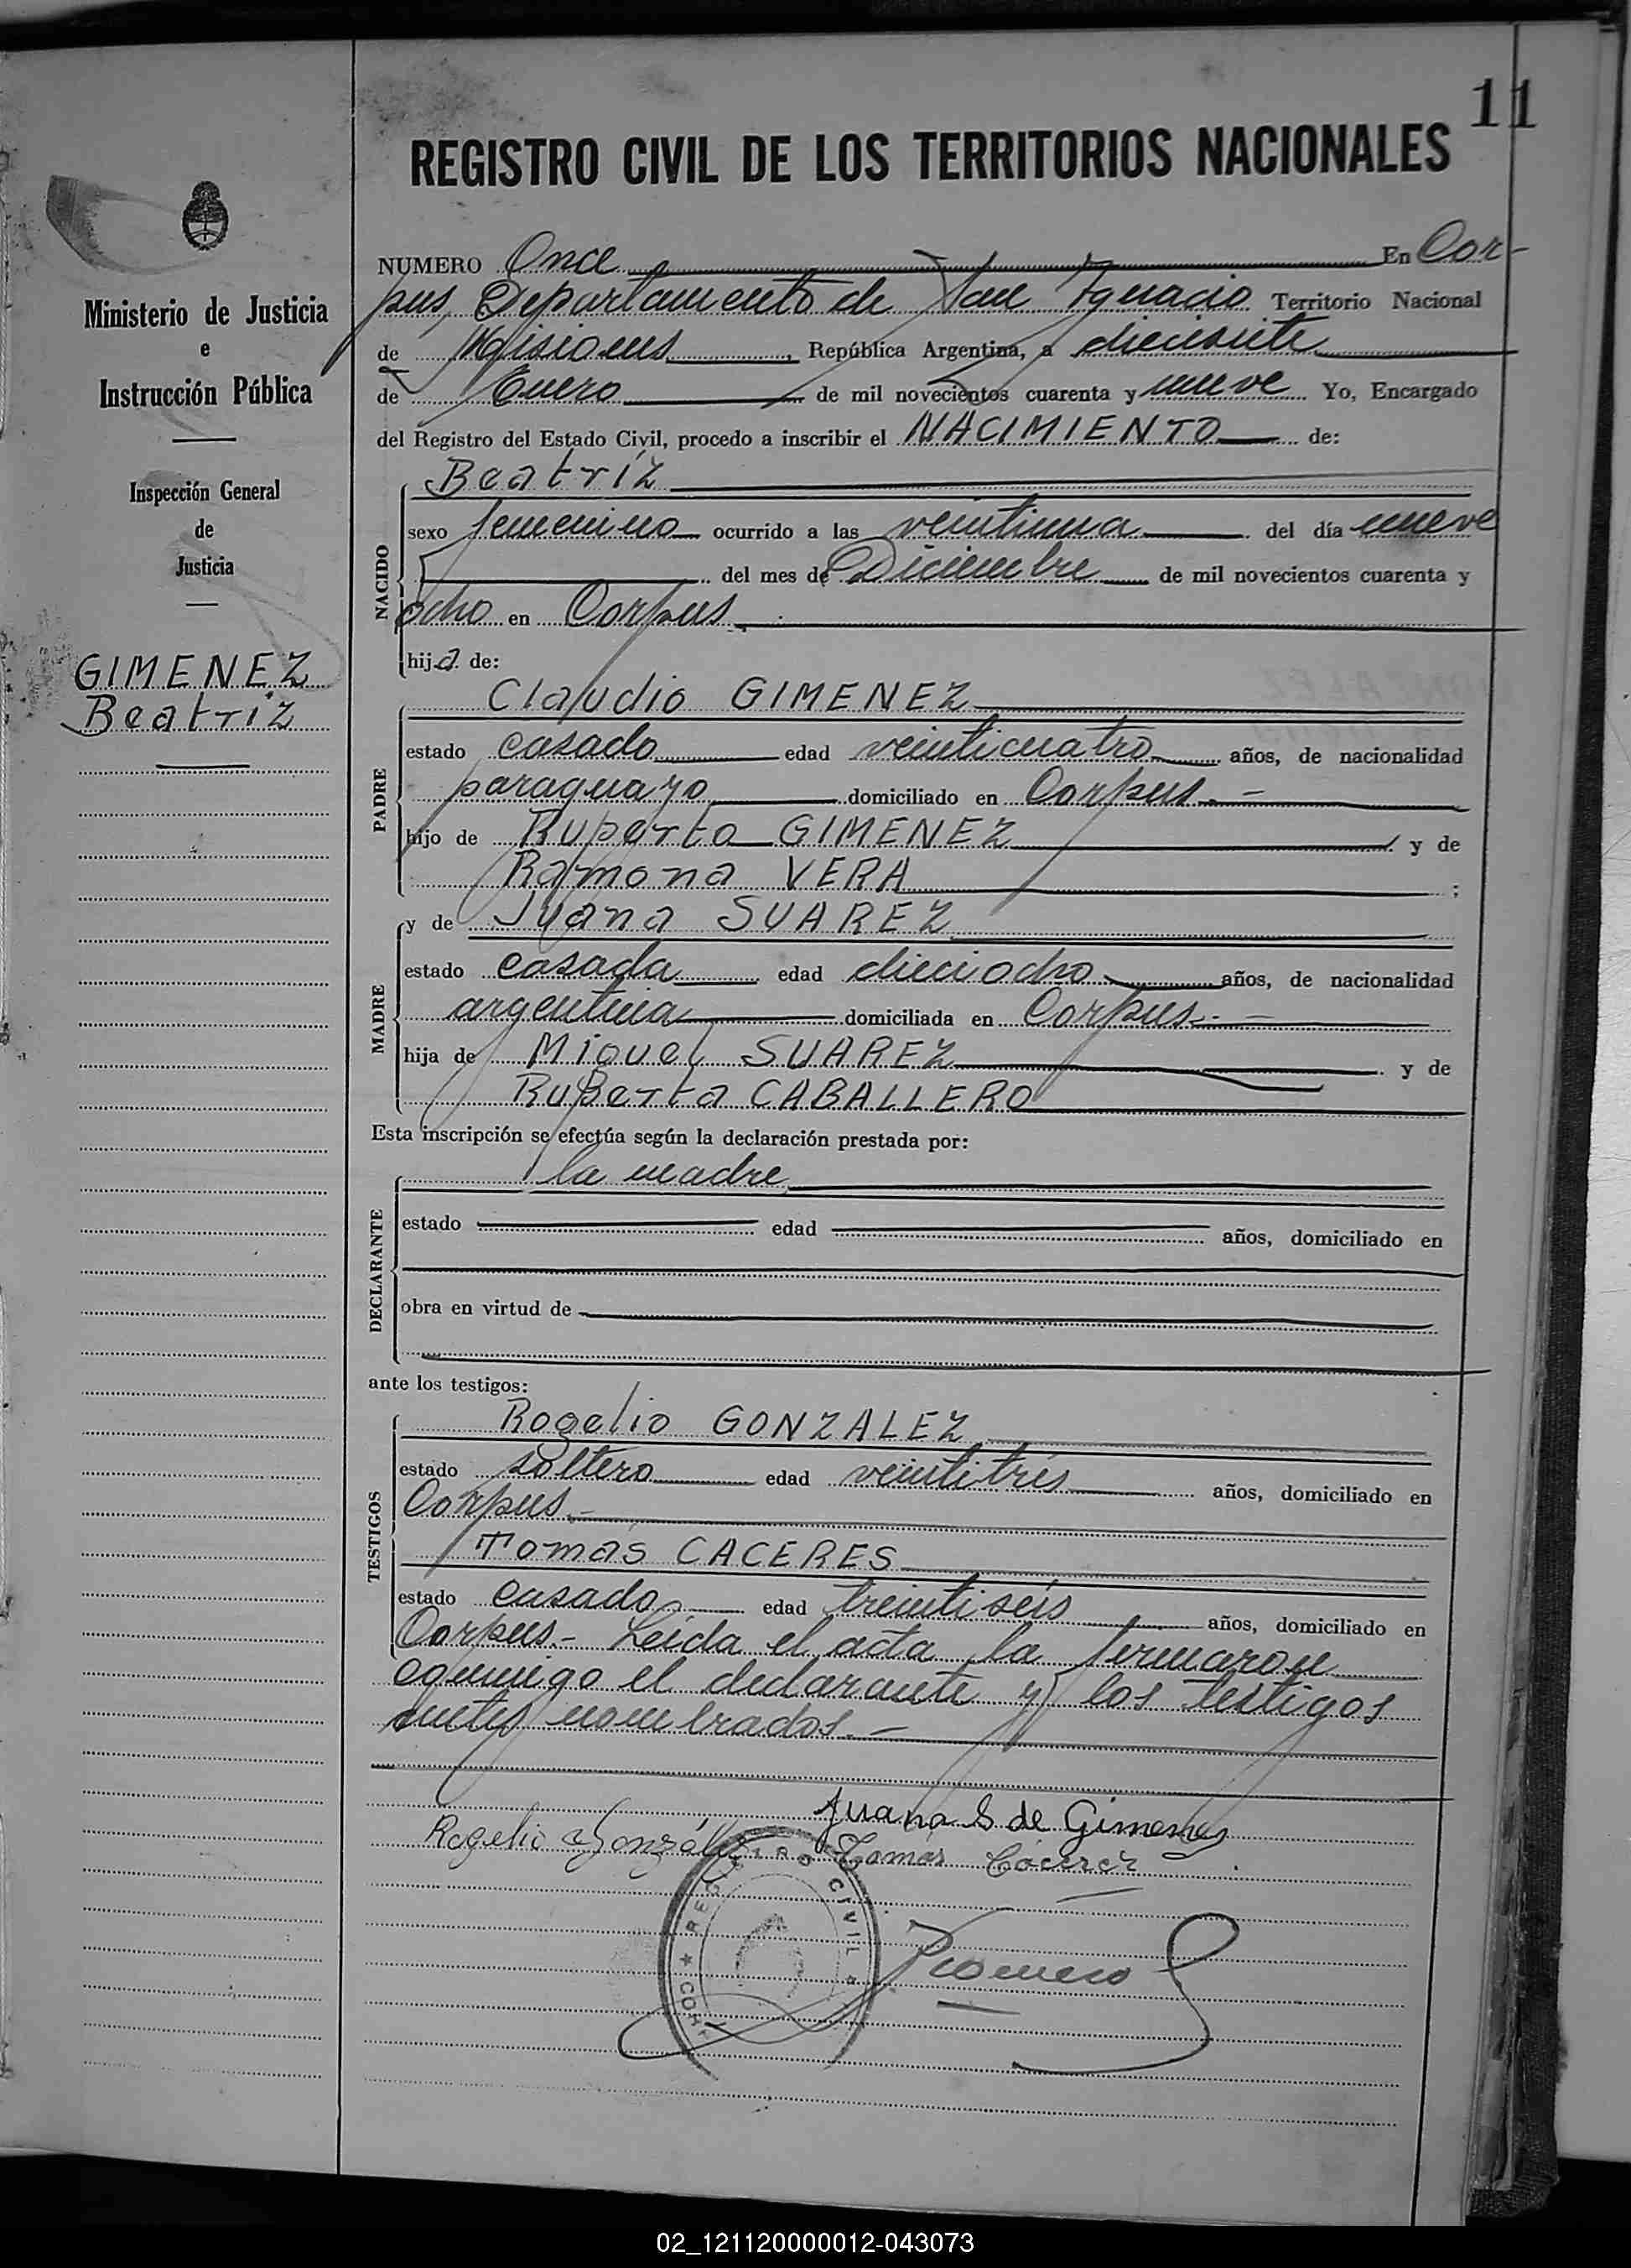 11
REGISTRO CIVIL DE LOS TERRITORIOS NACIONALES
Ministerio de Justicia
e
Instrucción Pública
Inspección General
de
Justicia
GIMENEZ
Beatriz
NUMERO Once En Cor-
pus, Departamento de San Ignacio Territorio Nacional
de Misiones, República Argentina, a diecisiete
de Enero de mil novecientos cuarenta y nueve Yo, Encargado
del Registro del Estado Civil, procedo a inscribir el NACIMIENTO de:
NACIDO
Beatriz
sexo femenino ocurrido a las veintiuna del día nueve
del mes de Diciembre de mil novecientos cuarenta y
ocho en Corpus.
hija de:
PADRE
Claudio GIMENEZ
estado casado edad veinticuatro años, de nacionalidad
paraguayo domiciliado en Corpus.-
hijo de Ruperto GIMENEZ y de
Ramona VERA ;
MADRE
y de Juana SUAREZ
estado casada edad dieciocho años, de nacionalidad
argentina domiciliada en Corpus.-
hija de Miguel SUAREZ y de
Ruperta CABALLERO
Esta inscripción se efectúa según la declaración prestada por:
DECLARANTE
la madre
estado edad años, domiciliado en
obra en virtud de
ante los testigos:
TESTIGOS
Rogelio GONZALEZ
estado soltero edad veintitrés años, domiciliado en
Corpus.-
Tomás CACERES
estado casado edad treintiseis años, domiciliado en
Corpus.- Leida el acta la firmaron
conmigo el declarante y los testigos
antes nombrados.-
Juana S de Gimenez
Rogelio González Tomás Cáceres
REGISTRO CIVIL
Romero
02_121120000012-043073